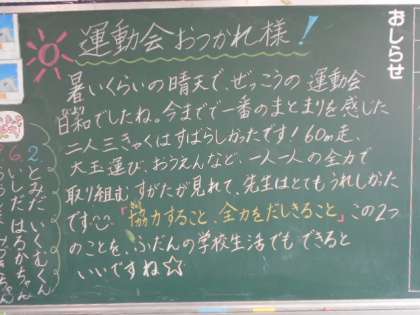 おしらせ
運動会おつかれ様!
暑いくらいの晴天で、ぜっこうの運動会
日和でしたね。今までで一番のまとまりを感じた
二人三きゃくはすばらしかったです!60m走、
大玉運び、おうえんなど、一人一人の全力で
取り組むすがたが見れて、先生はとてもうれしかった
です。「協力すること、全力をだしきること」この2つ
のことを、ふだんの学校生活でもできると
いいですね☆
6.2